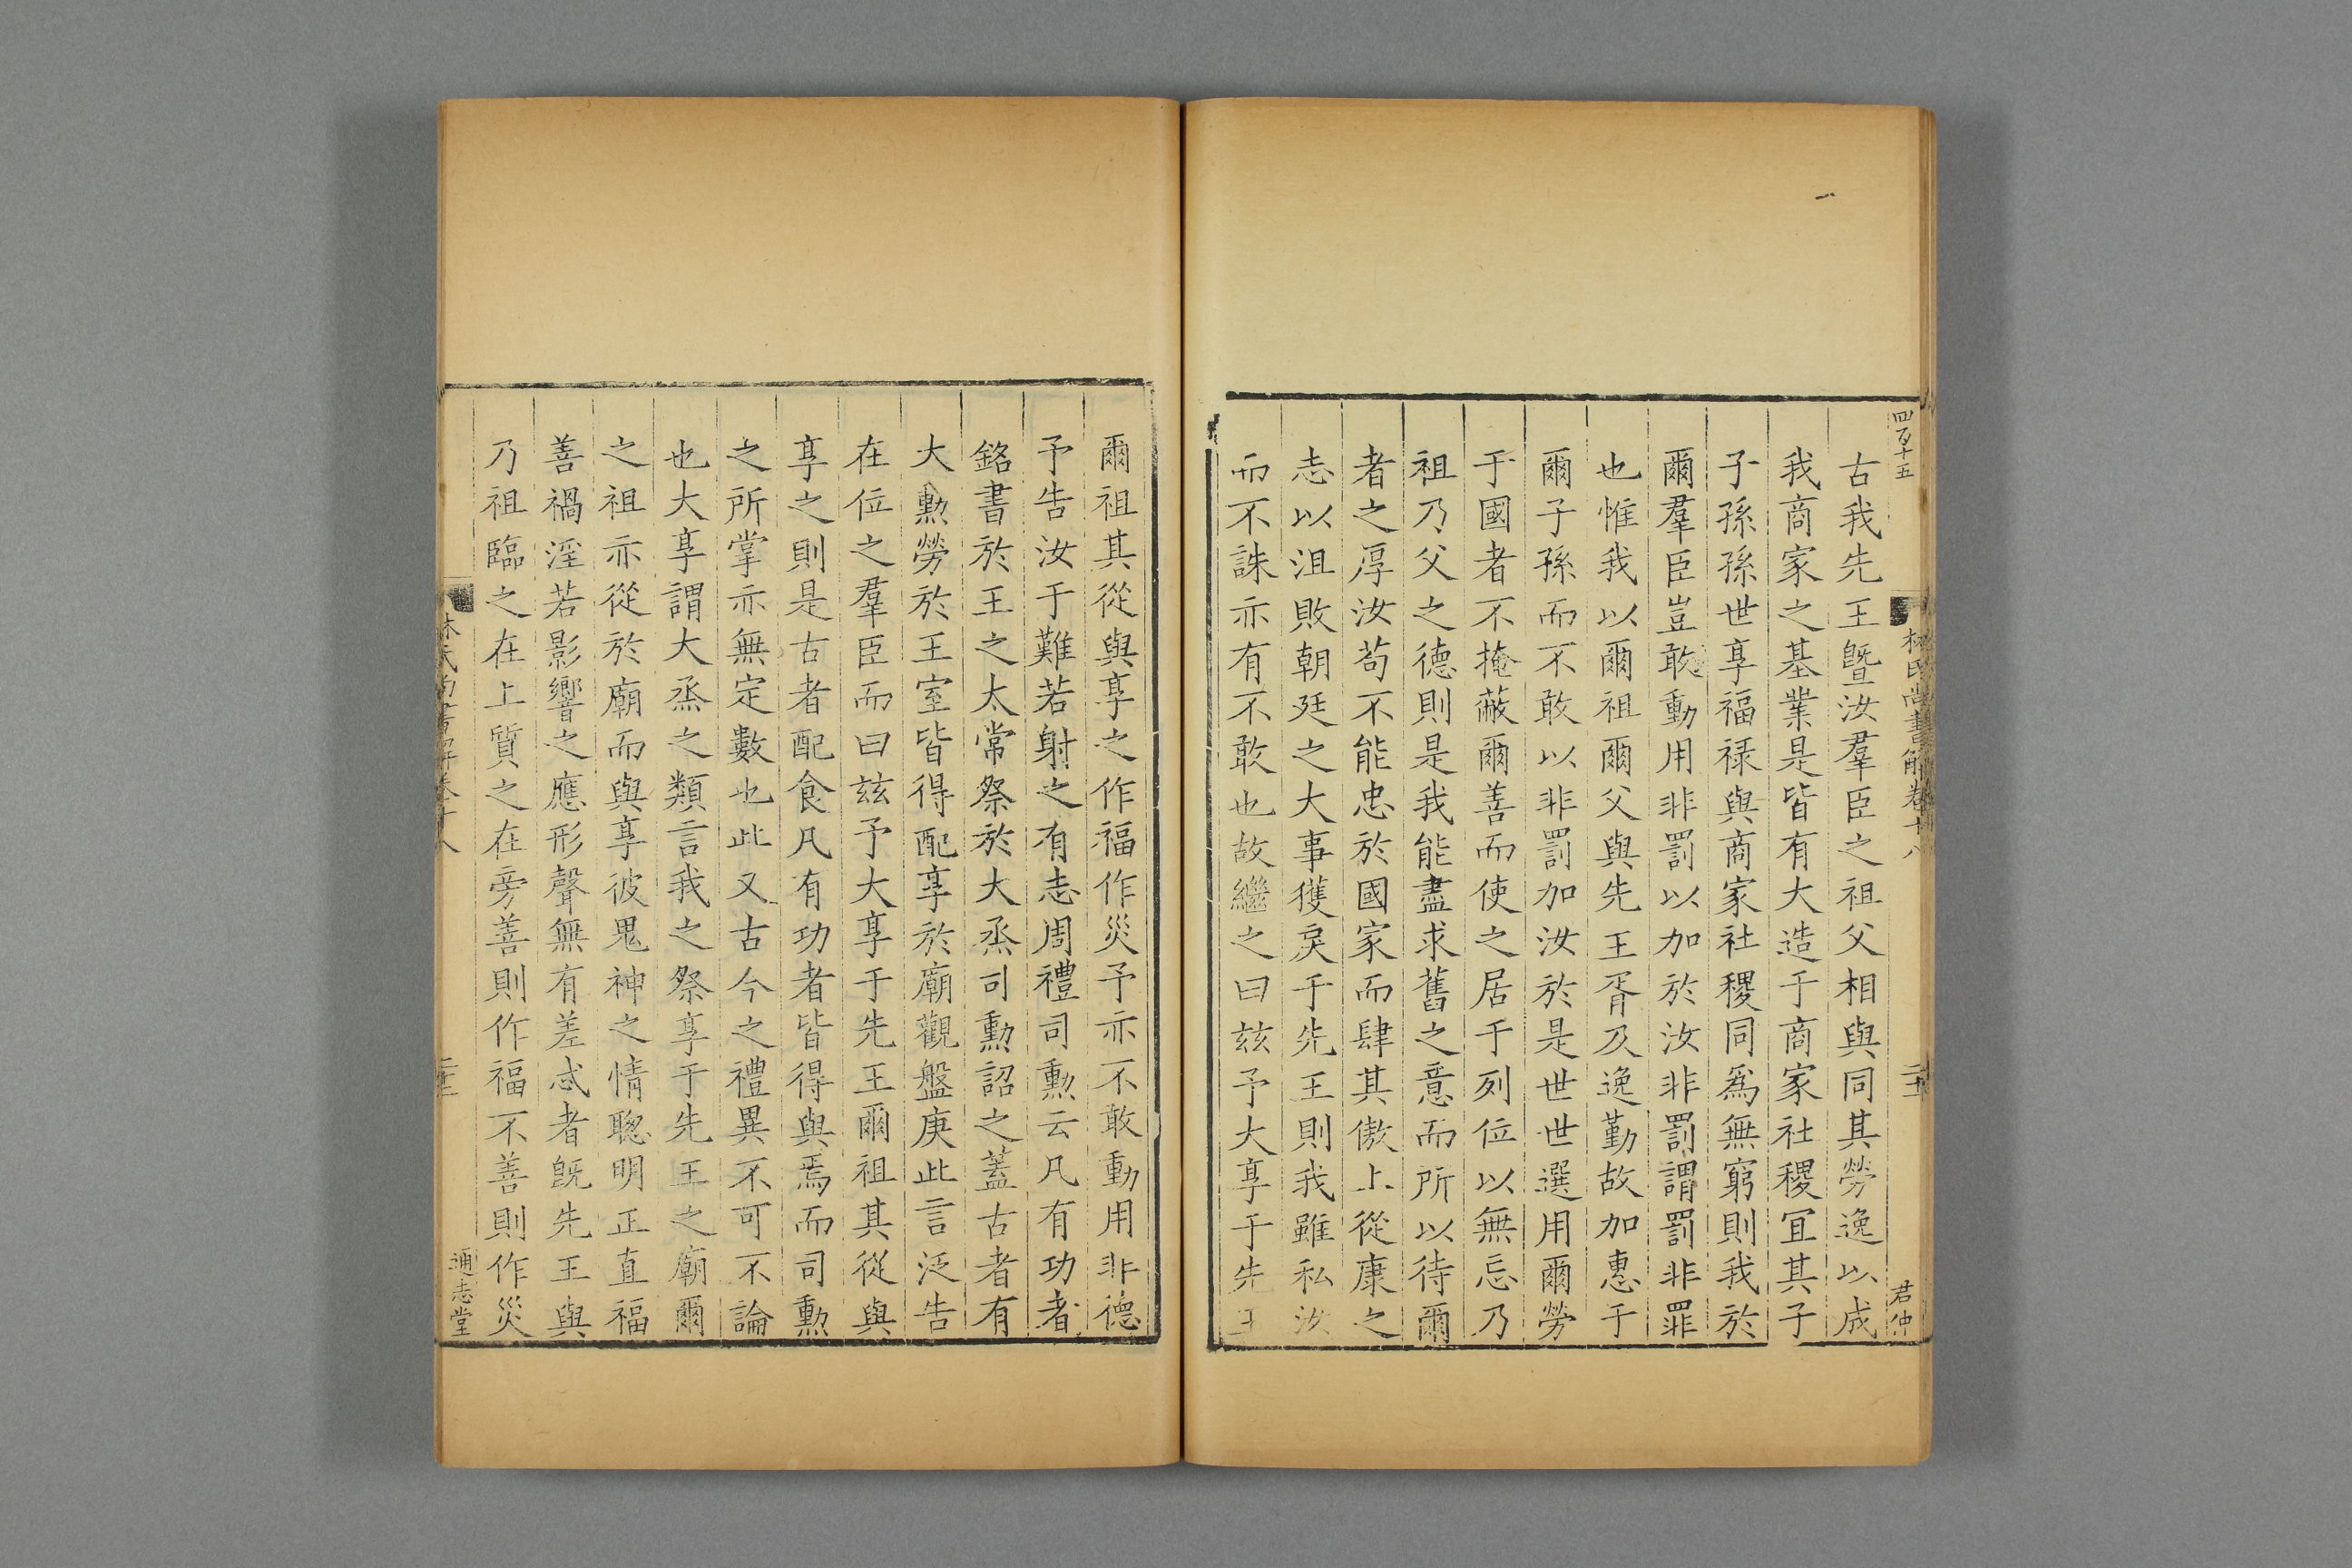 四百十五
林氏尚書解卷十八
君仲
古我先王曁汝羣臣之祖父相與同其勞逸以成
我商家之基業是皆有大造于商家社稷宜其子
子孫孫世享福祿與商家社稷同爲無窮則我於
爾羣臣豈敢動用非罰以加於汝非罰謂罰非罪
也惟我以爾祖爾父與先王胥及逸勤故加惠于
爾子孫而不敢以非罰加汝於是世世選用爾勞
于國者不掩蔽爾善而使之居于列位以無忘乃
祖乃父之德則是我能盡求舊之意而所以待爾
者之厚汝苟不能忠於國家而肆其傲上從康之
志以沮敗朝廷之大事獲戾于先王則我雖私汝
而不誅亦有不敢也故繼之曰兹予大享于先王
爾祖其從與享之作福作災予亦不敢動用非德
予告汝于難若射之有志周禮司勳云凡有功者
銘書於王之太常祭於大烝司勳詔之蓋古者有
大勳勞於王室皆得配享於廟觀盤庚此言泛告
在位之羣臣而曰兹予大享于先王爾祖其從與
享之則是古者配食凡有功者皆得與焉而司勳
之所掌亦無定數也此又古今之禮異不可不論
也大享謂大烝之類言我之祭享于先王之廟爾
之祖亦從於廟而與享彼鬼神之情聰明正直福
善禍淫若影響之應形聲無有差忒者旣先王與
乃祖臨之在上質之在旁善則作福不善則作災
通志堂